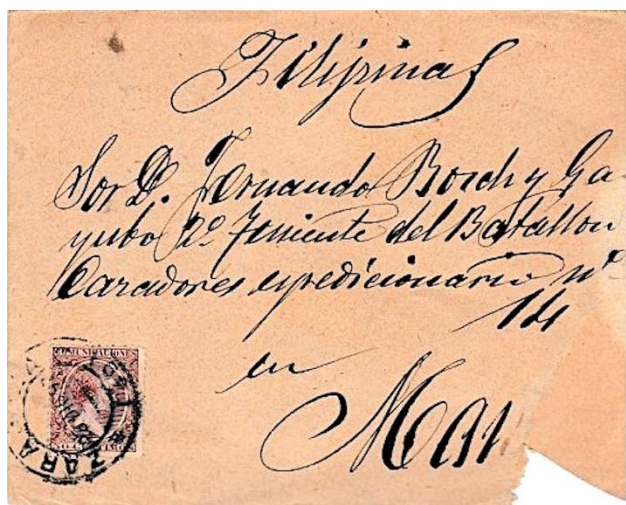 Filipinas
Sor D. Fernando Bosch y Ga-
yubo 2º Teniente del Batallon
Cazadores expedicionario nº
14
en
Man
COMUNICACIONES
ZARA